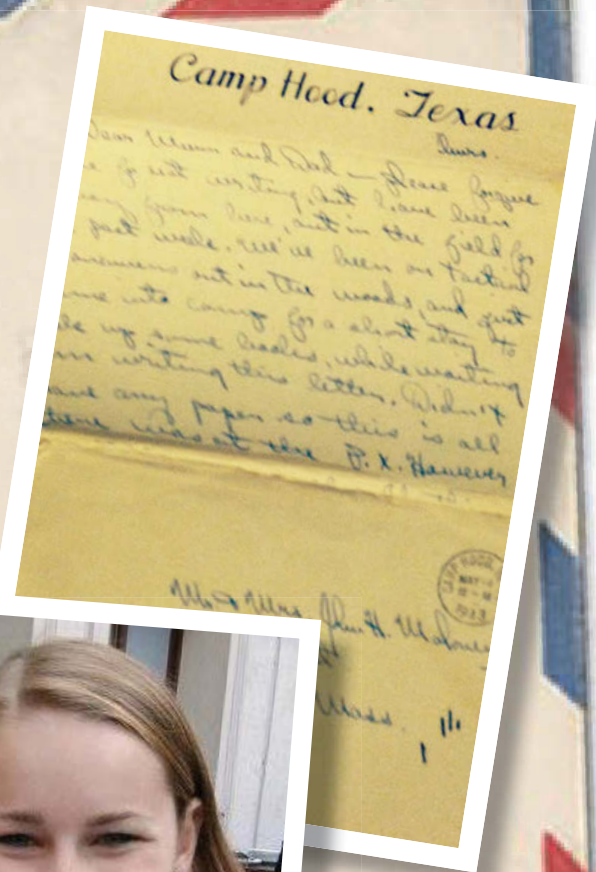 Camp Hood. Texas
Thurs.
Dear Mum and Dad – please forgive
not writing, but have been
from here, out in the field for
past week. We've been on tactical
out in the woods, and just
into camp for a short stay to
up some while waiting
writing this letter. Didn't
any paper so this is all
there was at the P.X. However
CAMP HOOD,
MAY
1943
Mr & Mrs. John H.
Mass.